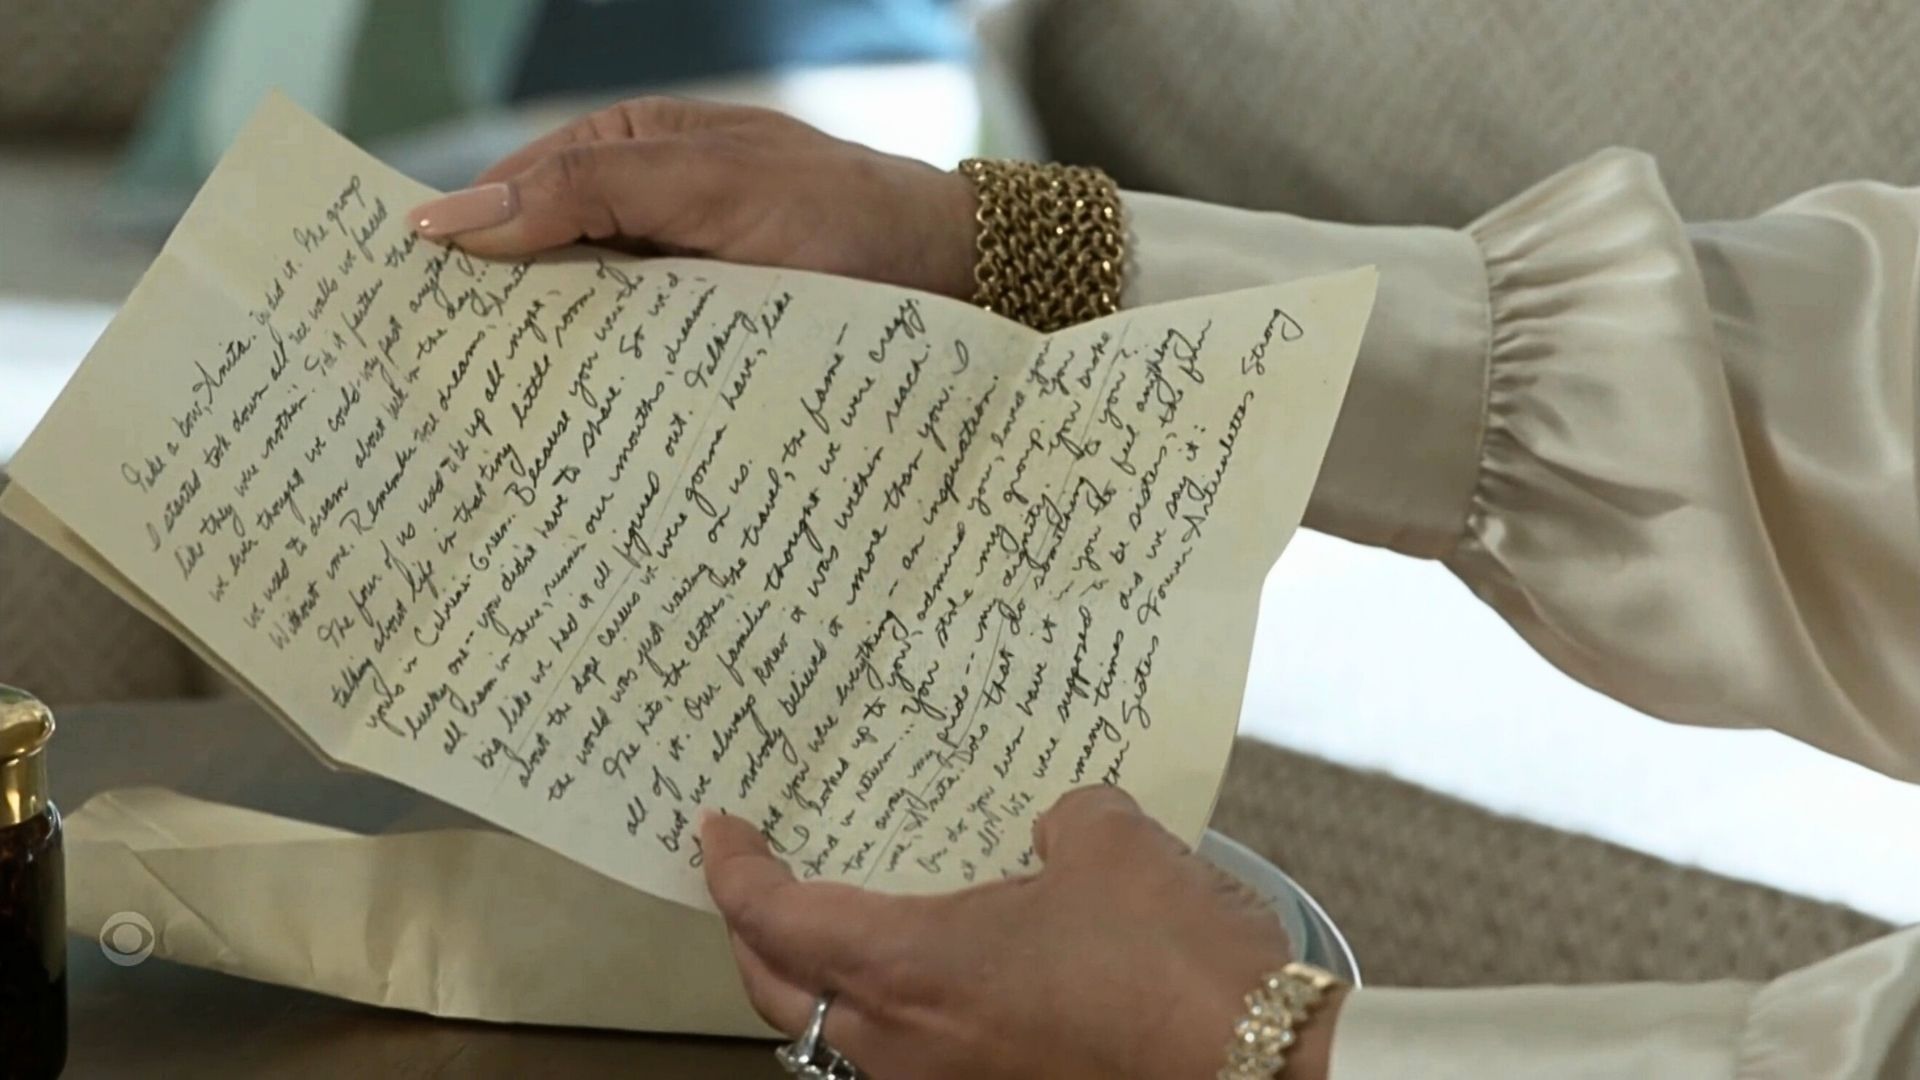 Take a bow, Anita. You did it. The group
I started took down all the walls we faced
like they were nothin'. Took it further than
we ever thought we could - way past anything
we used to dream about back in the day...
Without me. Remember the dreams, Anita
The four of us used to be up all night,
talking about life in that tiny little room of
yours in Cabrini-Green. Because you were the
lucky one -- you didn't have to share. So we'd
all cram in there, runnin' our mouths, dreamin'
big like we had it all figured out. Talking
about the dope careers we were gonna have, like
the world was just waiting on us.
The hits, the clothes, the travel, the fame -
all of it. Our families thought we were crazy.
but we always knew it was within reach.
nobody believed it more than you. I
you were everything - an inspiration.
I looked up to you, admired you, loved you
And in return... You stole my group. You
tore away my pride -- my dignity. You broke
me, Anita. Does that do something to you?
Or do you even have it in you to feel anything
at all? We were supposed to be sisters, the four
many times did we say it:
Sisters Forever Articulettes Strong